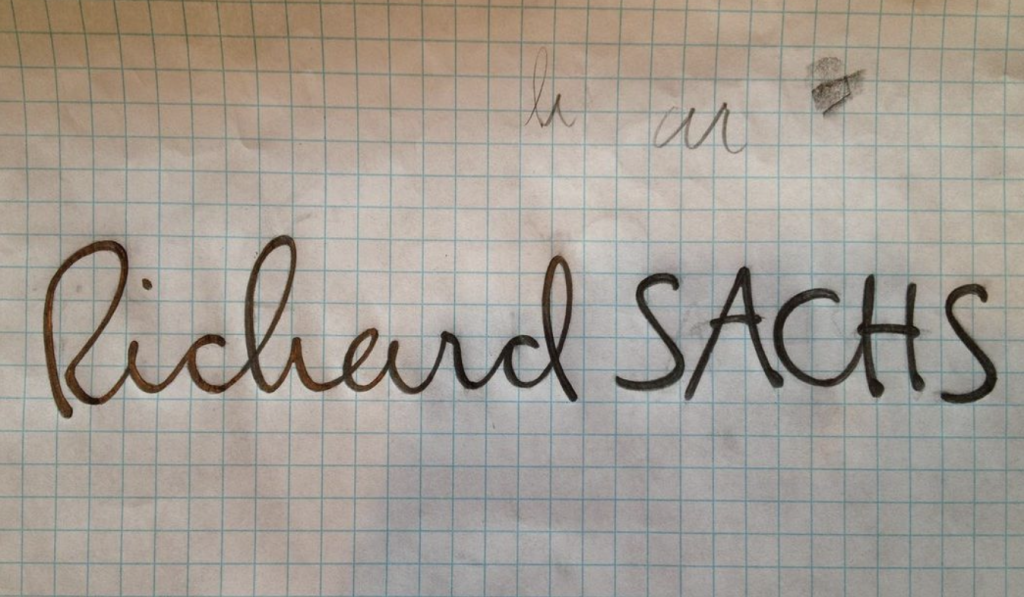 Richard SACHS